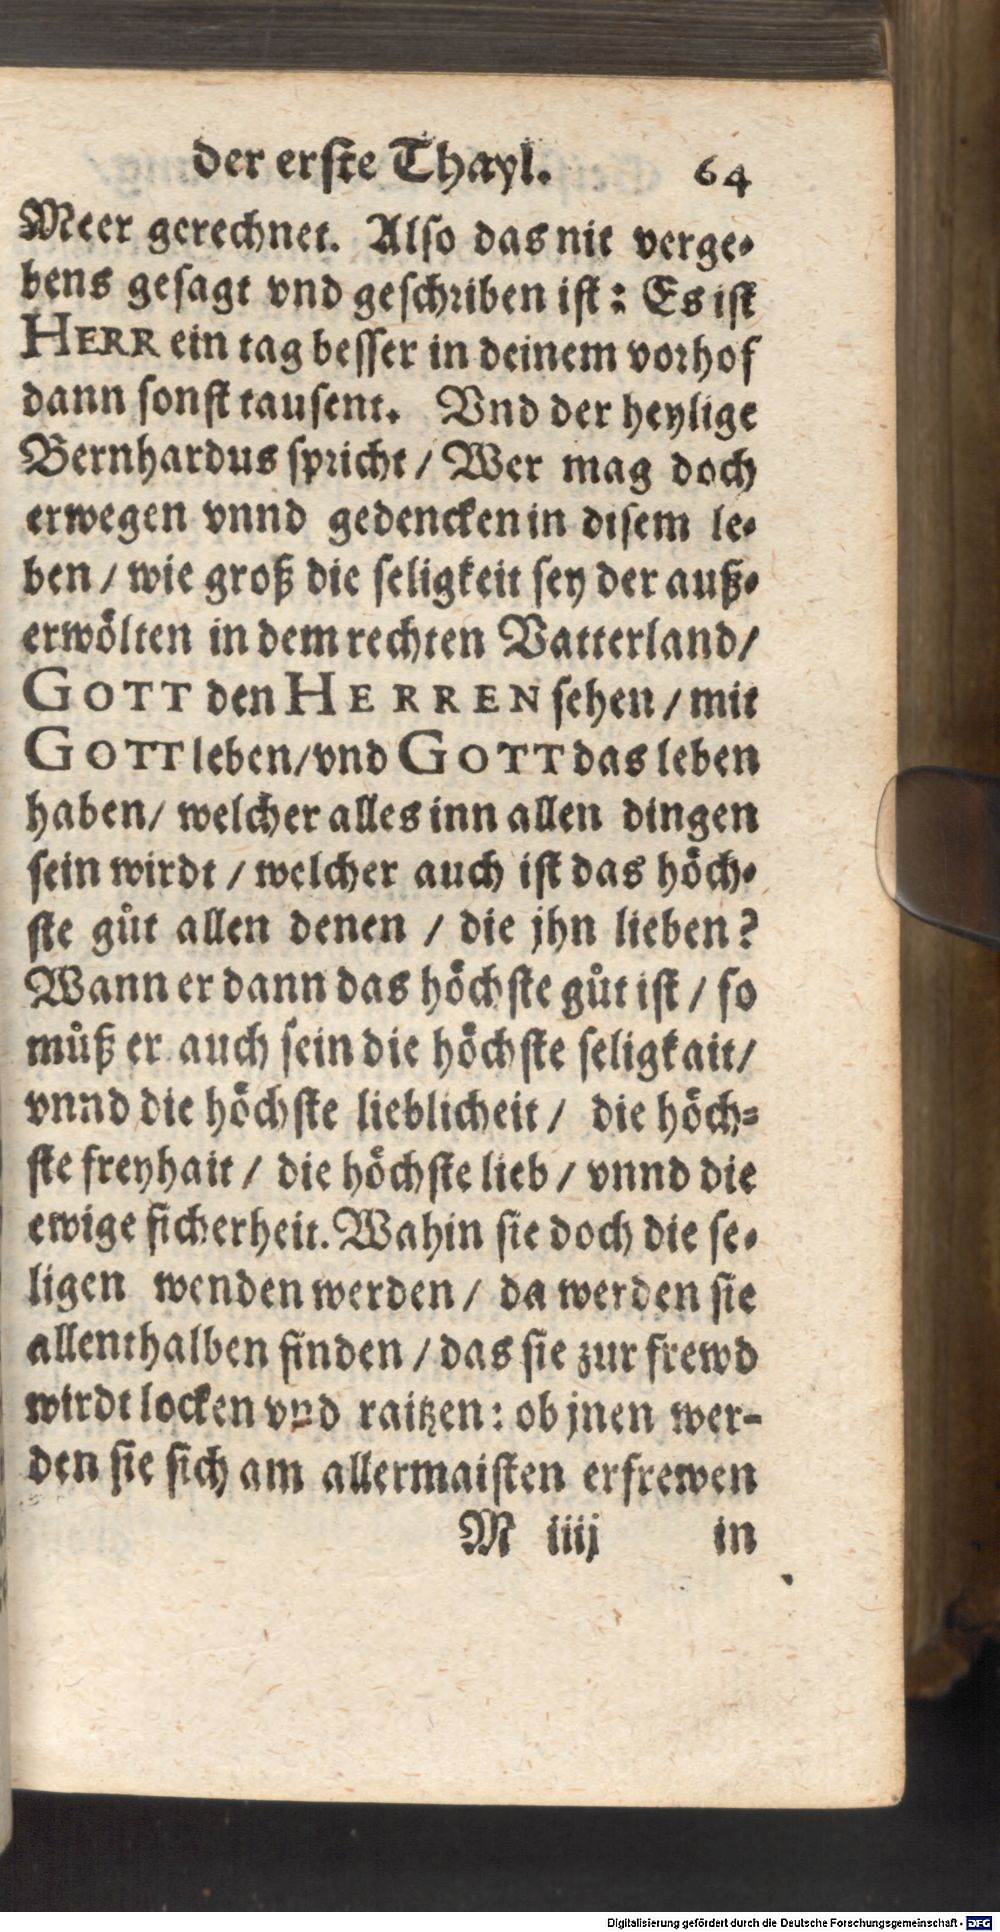 der erste Thayl. 64
Meer gerechnet. Also das nit verge-
bens gesagt vnd geschriben ist: Es ist
HERR ein tag besser in deinem vorhof
dann sonst tausent. Vnd der heylige
Bernhardus spricht / Wer mag doch
erwegen vnnd gedencken in disem le-
ben / wie groß die seligkeit sey der auß-
erwölten in dem rechten Vatterland/
GOTT den HERREN sehen / mit
GOTT leben/vnd GOTT das leben
haben/ welcher alles inn allen dingen
sein wirdt / welcher auch ist das höch-
ste gůt allen denen / die jhn lieben?
Wann er dann das höchste gůt ist / so
můß er auch sein die höchste seligkait/
vnnd die höchste lieblicheit / die höch-
ste freyhait / die höchste lieb / vnnd die
ewige sicherheit. Wahin sie doch die se-
ligen wenden werden / da werden sie
allenthalben finden / das sie zur frewd
wirdt locken vnd raitzen: ob jnen wer-
den sie sich am allermaisten erfrewen
M iiij in
Digitalisierung gefördert durch die Deutsche Forschungsgemeinschaft - DFG